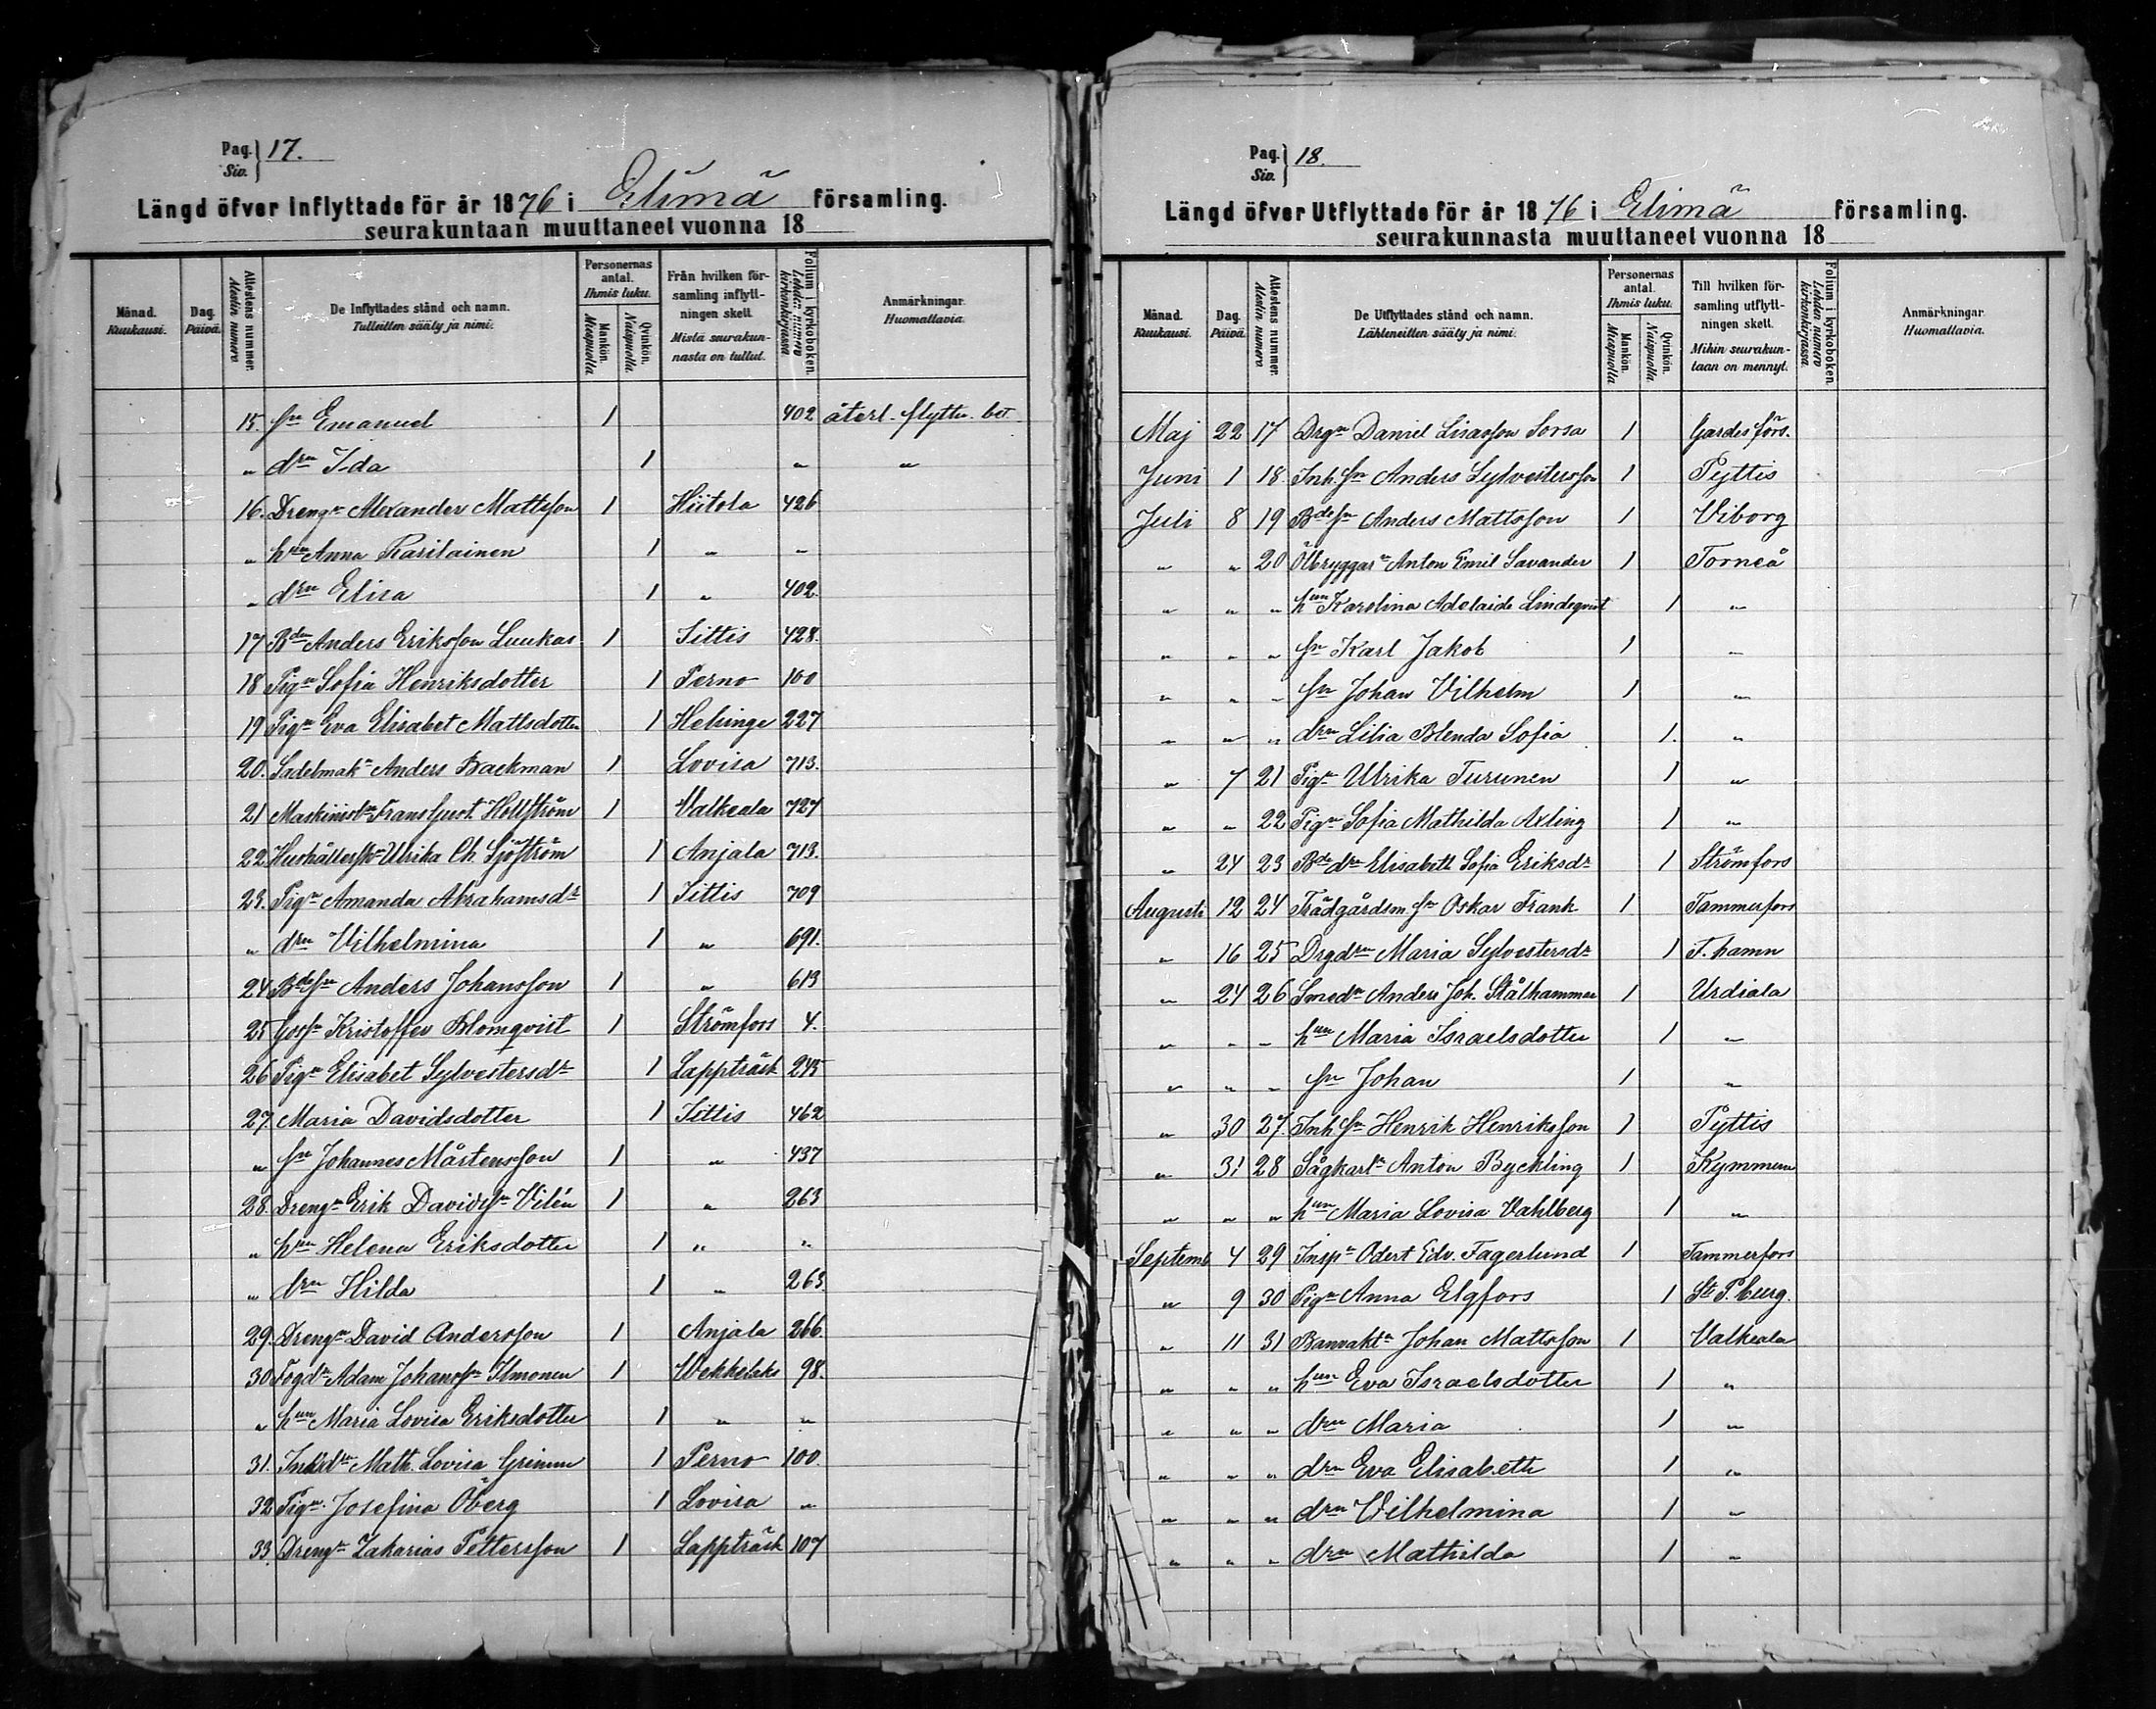 Pag. 17.
Siv.
Längd öfver Inflyttade för år 1876 i Elimä församling.
seurakuntaan muuttaneet vuonna 18
Månad. Kuukausi. Dag. Päivä. Attestens nummer. Alestin numero De Inflyttades stånd och namn. Tulleitten sääty ja nimi. Personernas antal. Ihmis luku. Mankön. Miespuolia Qvinkön. Naispuolia. Från hvilken församling inflyttningen skett. Mistä seurakunnasta on tullut. Folium i kyrkoboken. Lehden numero kirkonkirjassa. Anmärkningar. Huomattavia.
15. sn Emanuel 1 402 återl. flyttn. bet.
" drn Ida 1 " "
16. Drengn Alexander Mattsson 1 Hiitola 426
" hun Anna Karilainen 1 " "
" drn Elisa 1 " 402.
17 Bdn Anders Eriksson Luukas 1 Iittis 428.
18 Pign Sofia Henriksdotter 1 Perno 100
19 Pign Eva Elisabet Mattsdotter 1 Helsinge 227
20. Sadelmakn Anders Backman 1 Lovisa 713.
21 Maskinistn Frans Gust. Hollström 1 Valkeala 727
22. Hushållersk. Ulrika Ch. Sjöström 1 Anjala 713.
23. Pign Amanda Abrahamsdr 1 Iittis 709
" drn Vilhelmina 1 " 691.
24 Bdesn Anders Johansson 1 " 613
25 Gossn Kristoffer Blomqvist 1 Strömfors 4.
26 Pign Elisabet Sylvestersdr 1 Lappträsk 245
27. Maria Davidsdotter 1 Iittis 462
" sn Johannes Mårtensson 1 " 437
28. Drengn Erik Davidsn Vilén 1 " 263
" hun Helena Eriksdotter 1 " "
" drn Hilda 1 " 263.
29. Drengn David Andersson 1 Anjala 266.
30. Fogdn Adam Johanssn Ilmonen 1 Wekkelaks 98.
" hun Maria Lovisa Eriksdotter 1 " "
31. Inh.drn Math. Lovisa Grimm 1 Perno 100.
32 Pign Josefina Öberg 1 Lovisa "
33. Drengn Zakarias Pettersson 1 Lappträsk 107
Pag. 18.
Siv.
Längd öfver Utflyttade för år 1876 i Elimä församling.
seurakunnasta muuttaneet vuonna 18
Månad. Kuukausi. Dag. Päivä. Attestens nummer. Alestin numero De Utflyttades stånd och namn. Lähteneitten sääty ja nimi. Personernas antal. Ihmis luku. Mankön. Miespuolia Qvinkön. Naispuolia. Till hvilken församling utflyttningen skett. Mihin seurakuntaan on mennyt. Folium i kyrkoboken. Lehden numero kirkonkirjassa. Anmärkningar. Huomattavia.
Maj 22 17 Drgn Daniel Lisasson Sorsa 1 Gardesförs.
Juni 1 18. Inh. sn Anders Sylvestersson 1 Pyttis
Juli 8 19 Bdesn Anders Mattsson 1 Viborg
" " 20 Ölbryggarn Anton Emil Savander 1 Torneå
" " " hun Karolina Adelaide Lindeqvist 1 "
" " " sn Karl Jakob 1 "
" " " sn Johan Vilhelm 1 "
" " " drn Lilia Blenda Sofia 1. "
" 7 21 Pign Ulrika Turunen 1 "
" " 22 Pign Sofia Mathilda Axling 1 "
" 24 23 Bde drn Elisabeth Sofia Eriksdr 1 Strömfors
Augusti 12 24 Trädgårdsm. sn Oskar Frank 1 Tammerfors
" 16 25 Drgdrn Maria Sylvestersdr 1 F. hamn
" 24 26 Smedn Anders Joh. Stålhammar 1 Urdiala
" " " hun Maria Israelsdotter 1 "
" " " sn Johan 1 "
" 30 27. Inh. sn Henrik Henriksson 1 Pyttis
" 31 28 Sågkarln Anton Byckling 1 Kymmene
" " " hun Maria Lovisa Vahlberg 1 "
Septemb. 4 29 Inspn Odert Edv. Fagerlund 1 Tammerfors
" 9 30 Pign Anna Elgfors 1 St. P.burg.
" 11 31 Banvaktn Johan Mattsson 1 Valkeala
" " " hun Eva Israelsdotter 1 "
" " " drn Maria 1 "
" " " drn Eva Elisabeth 1 "
" " " drn Wilhelmina 1 "
" " " drn Mathilda 1 "